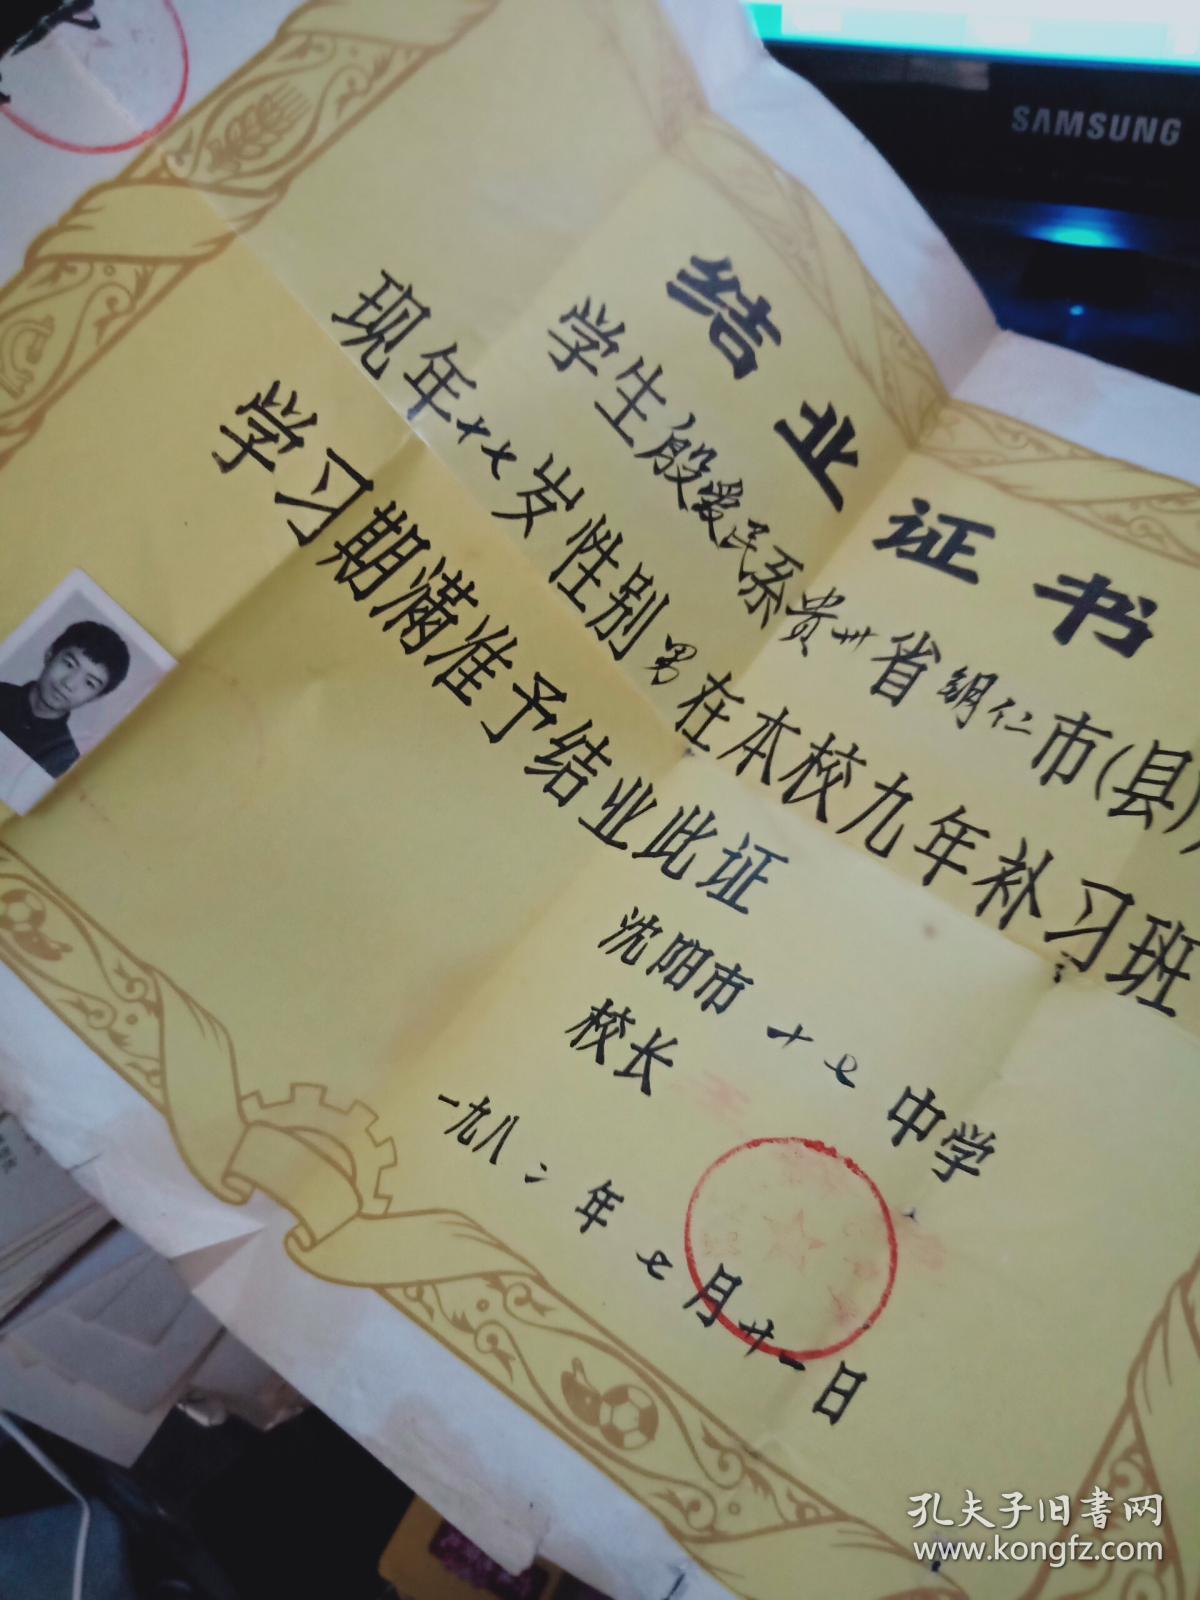 SAMSUNG
结业证书
学生殷爱民系贵州省铜仁市(县)
现年十七岁性别男在本校九年补习班
学习期满准予结业此证
沈阳市十七中学
校长
一九八二年七月廿一日
孔夫子旧書网
www.kongfz.com